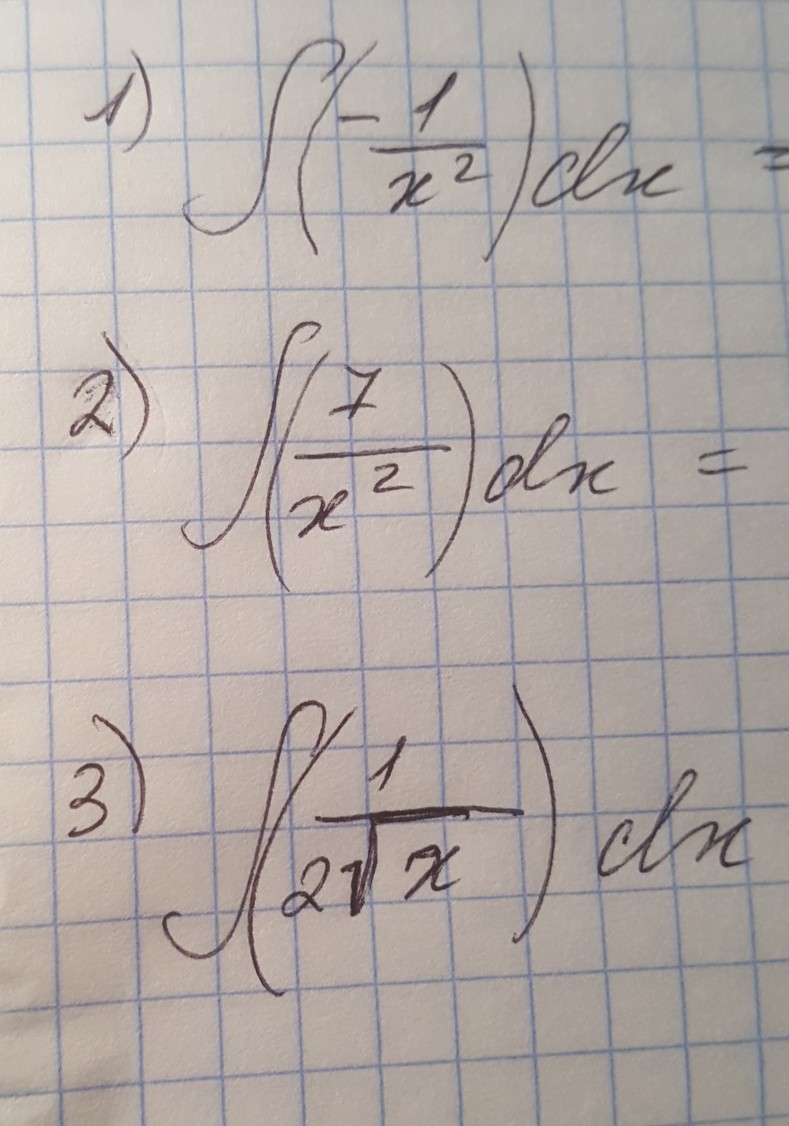 1) ∫(-1/x²)dx =
2) ∫(7/x²)dx =
3) ∫(1/2√x)dx